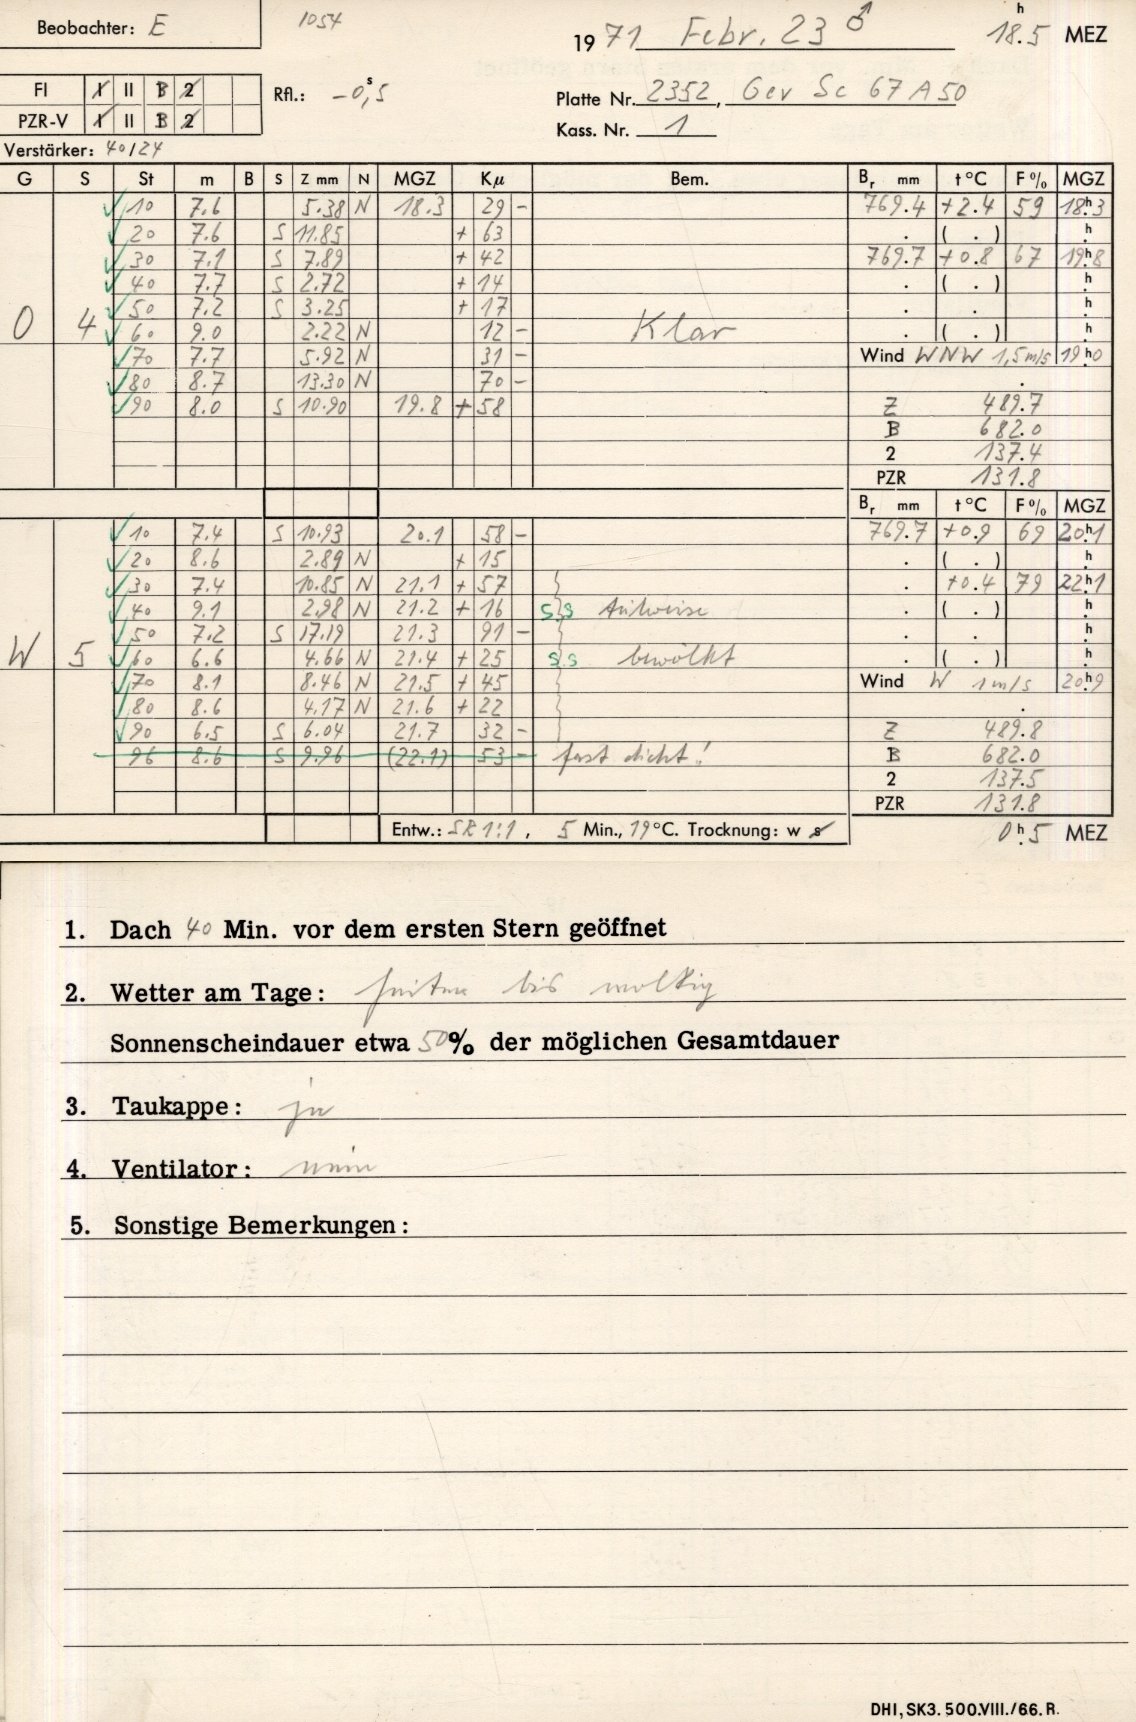 Beobachter: E
1054
1971 Febr. 23 ♂
18.5 h MEZ
FI I II B 2
Rfl.: -0,5 s
Platte Nr. 2352, Gev Sc 67 A 50
PZR-V I II B 2
Kass. Nr. 1
Verstärker: 40/24
G S St m B S Z mm N MGZ Kμ Bem. Br mm t °C F % MGZ
10 7.6 5.38 N 18.3 29 - 769.4 +2.4 59 18.3 h
20 7.6 S 11.85 + 63 . ( . ) h
30 7.1 S 7.89 + 42 769.7 +0.8 67 19.8 h
40 7.7 S 2.72 + 14 . ( . ) h
50 7.2 S 3.25 + 17 . . h
O 4 60 9.0 2.22 N 12 - Klar . ( . ) h
70 7.7 5.92 N 31 - Wind WNW 1,5 m/s 19.0 h
80 8.7 13.30 N 70 -
90 8.0 S 10.90 19.8 + 58 Z 489.7
B 682.0
2 137.4
PZR 131.8
Br mm t °C F % MGZ
10 7.4 S 10.93 20.1 58 - 769.7 +0.9 69 20.1 h
20 8.6 2.89 N + 15 . ( . ) h
30 7.4 10.85 N 21.1 + 57 . +0.4 79 22.1 h
40 9.1 2.98 N 21.2 + 16 s.s teilweise . ( . ) h
50 7.2 S 17.19 21.3 91 - . . h
W 5 60 6.6 4.66 N 21.4 + 25 s.s. bewölkt . ( . ) h
70 8.1 8.46 N 21.5 + 45 Wind W 1 m/s 20.9 h
80 8.6 4.17 N 21.6 + 22
90 6.5 S 6.04 21.7 32 - Z 489.8
96 8.6 S 9.96 (22.1) 53 - fast dicht! B 682.0
2 137.5
PZR 131.8
Entw.: SR 1:1, 5 Min., 19 °C. Trocknung: w s
0.5 h MEZ
1. Dach 40 Min. vor dem ersten Stern geöffnet
2. Wetter am Tage: heiter bis wolkig
Sonnenscheindauer etwa 50% der möglichen Gesamtdauer
3. Taukappe: ja
4. Ventilator: nein
5. Sonstige Bemerkungen:
DHI, SK3. 500.VIII./66. R.